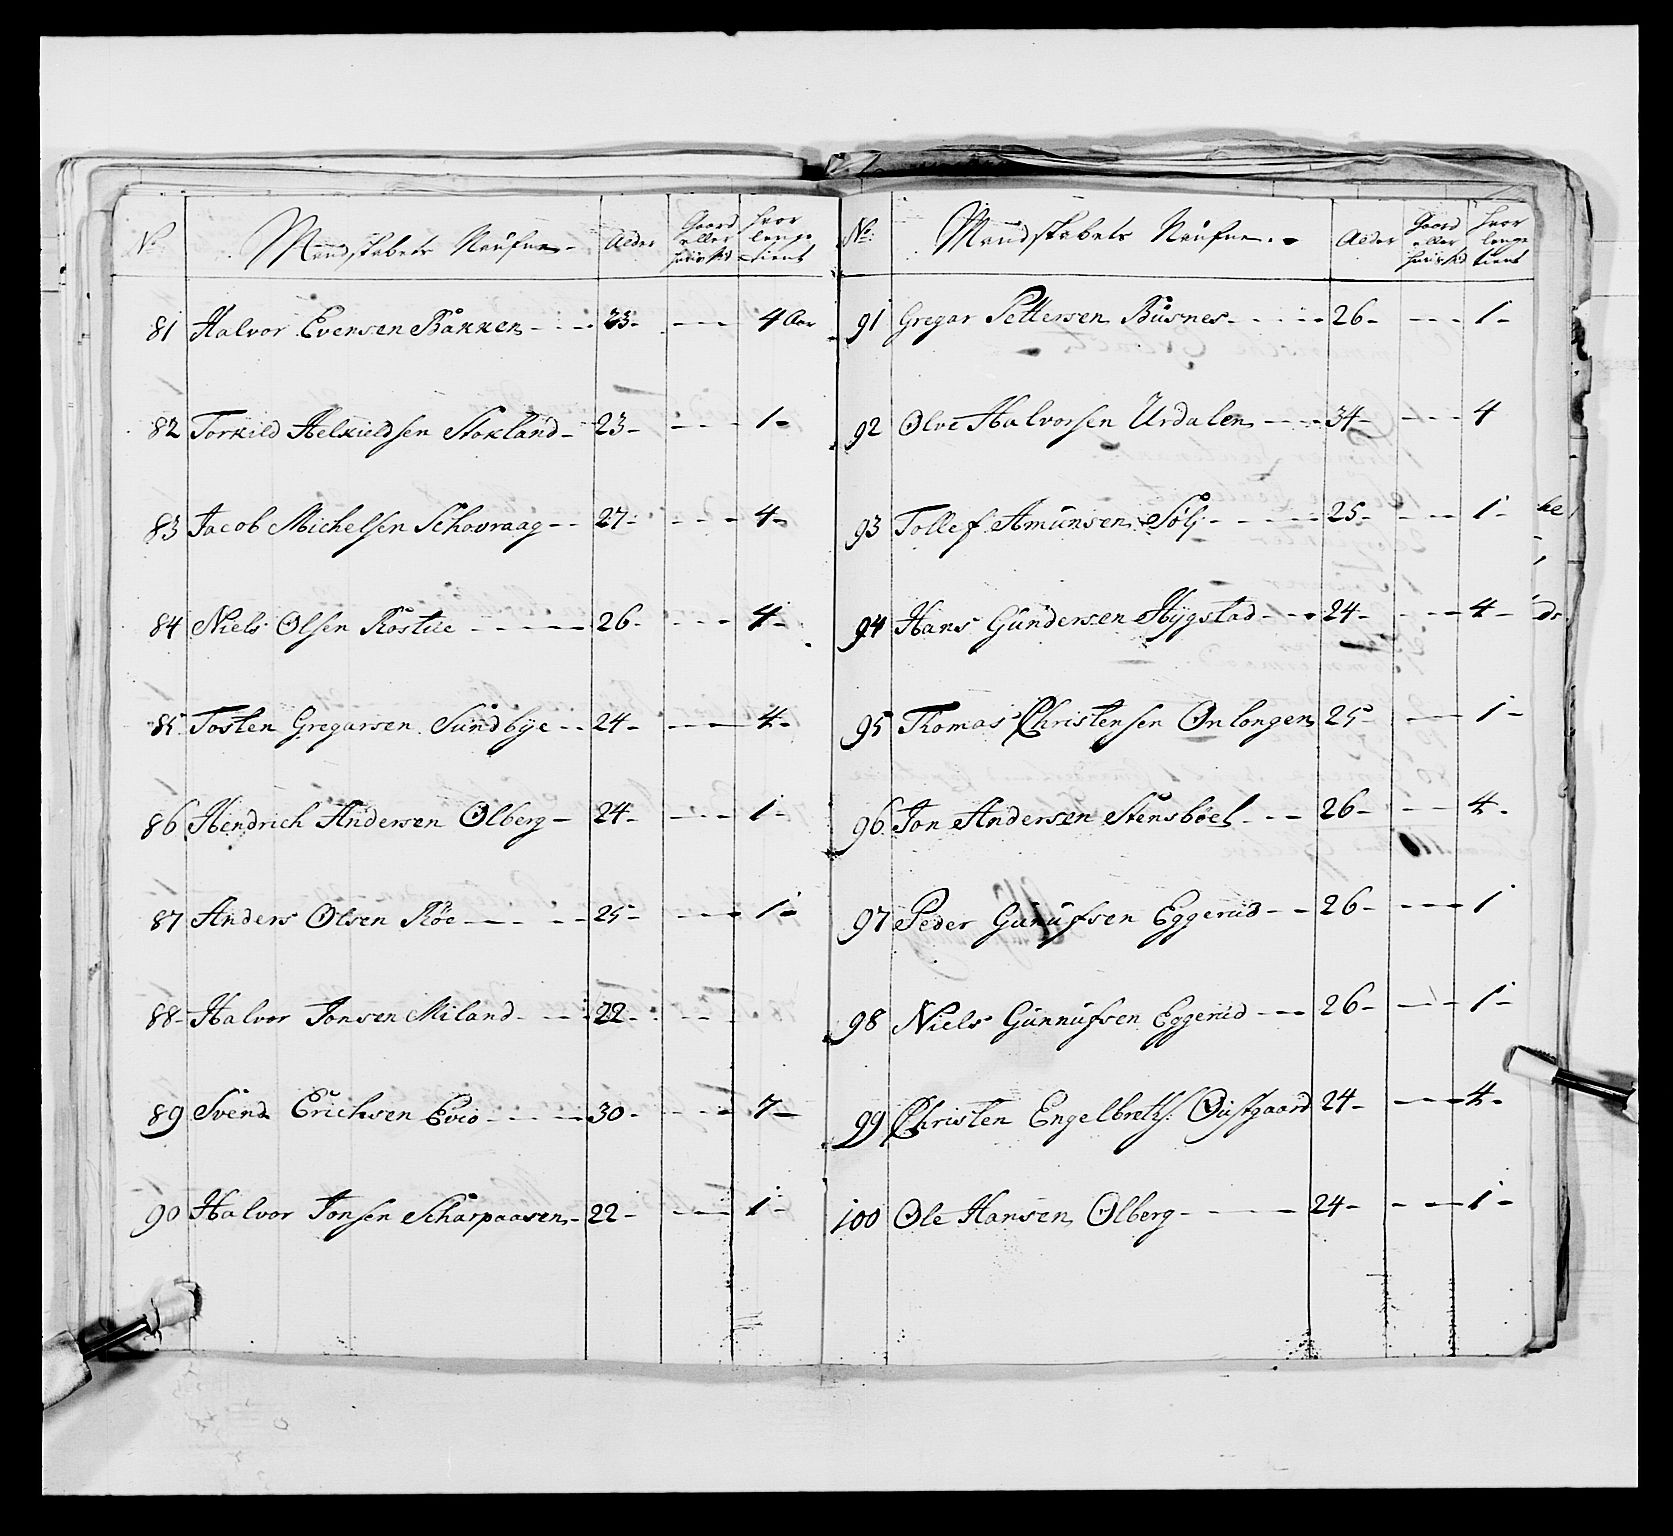 No. Mandskabets Naufne. Alder Gaard eller huusMd hvor lenge tient
81 Halvor Evensen Bakken 33 - - - 4 Aar
82 Torkild Helkieldsen Stokland 23 - - - 1
83 Jacob Michelsen Schovraag 27 - - - 4
84 Niels Olsen Rostue 26 - - - 4
85 Tosten Gregarsen Sundbye 24 - - - 4
86 Hendrich Andersen Olberg 24 - - - 1
87 Anders Olsen Röe 25 - - - 1
88 Halvor Jonsen Miland 22 - - -
89 Svend Erichsen Evio 30 - - - 7
90 Halvor Jonsen Scharpaasen 22 - - - 1
No. Mandskabets Naufne. Alder Gaard eller huusMd hvor lenge tient
91 Gregar Pettersen Busnes 26 - - - 1
92 Olve Halvorsen Urdalen 34 - - - 4
93 Tollef Amunsen Sölj 25 - - - 1
94 Hans Gundersen Hygstad 24 - - - 4
95 Thomas Christensen Onlongen 25 - - 1
96 Jon Andersen Stensböel 26 - - 4
97 Peder Gunufsen Eggerud 26 - - - 1
98 Niels Gunnufsen Eggerud 26 - - 1
99 Christen Engelbretts. Oustgaard 24 - - - 4
100 Ole Hansen Olberg 24 - - - 1